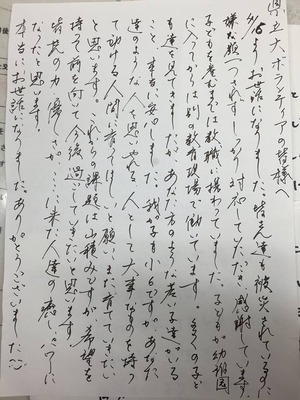 県立大ボランティアの皆様へ
4/15より、お世話になりました。皆も先達も被災されているのに
嫌な顔一つされずしっかり対応していただき感謝しています。
子どもを産むまでは教職に携わっていました。子どもが幼稚園
に入ってからは別の教育現場で働いています。多くの子ど
も達を見てきましたが、あなた方のような若い子達がいる
こと、本当に安心しました。我が子も小6ですが、あなた
達のような人を思いやれる、人として大事なものを持っ
て動ける人間に育ってほしいと願い、また育てていきたい
と思います。これからの課題は山積みですが希望を
持って前を向いて今後過ごしていきたいと思います。
皆さんの力、優しさがここに来た人達の癒し、パワーに
なったと思います。
本当にお世話になりました。ありがとうございました(^^)